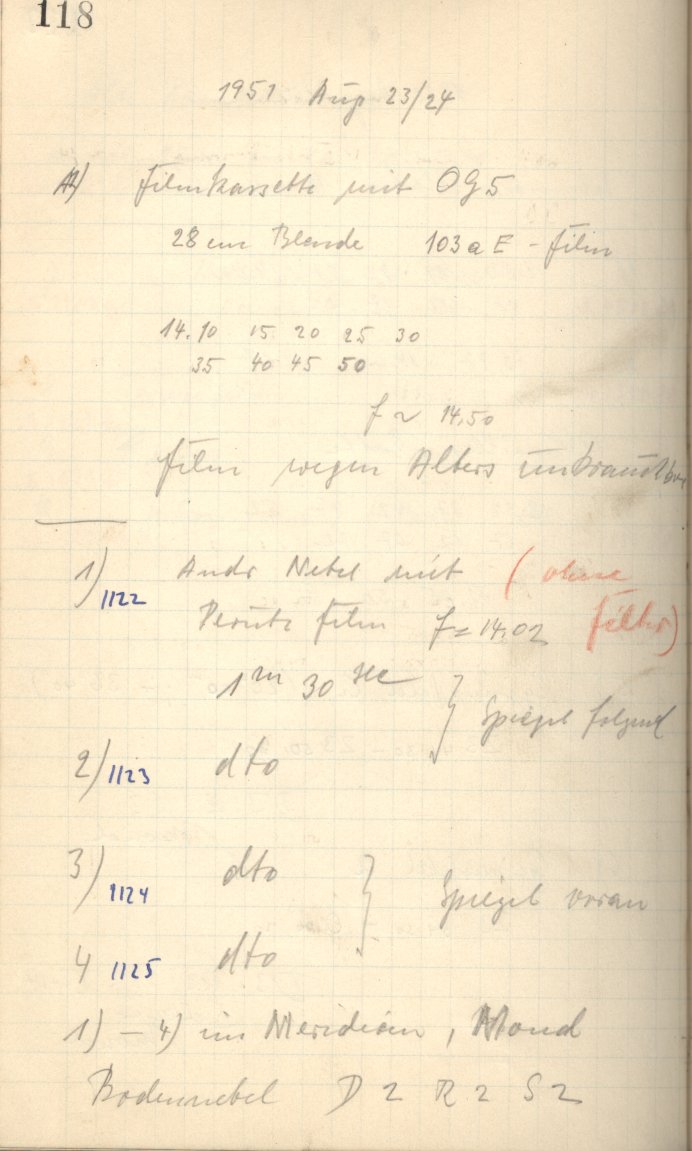 118
1951 Aug 23/24
A) Filmkassette mit OG5
28 cm Blende 103aE - Film
14.10 15 20 25 30
35 40 45 50
f ~ 14.50
Film wegen Alters unbrauchbar
1) 1122 Andr Nebel mit (ohne
Perutz Film f = 14.02 Filter)
1m 30 sec
} Spiegel folgend
2) 1123 dto
3) 1124 dto
} Spiegel voran
4 1125 dto
1) – 4) im Meridian, Mond
Bodennebel D 2 R 2 S 2